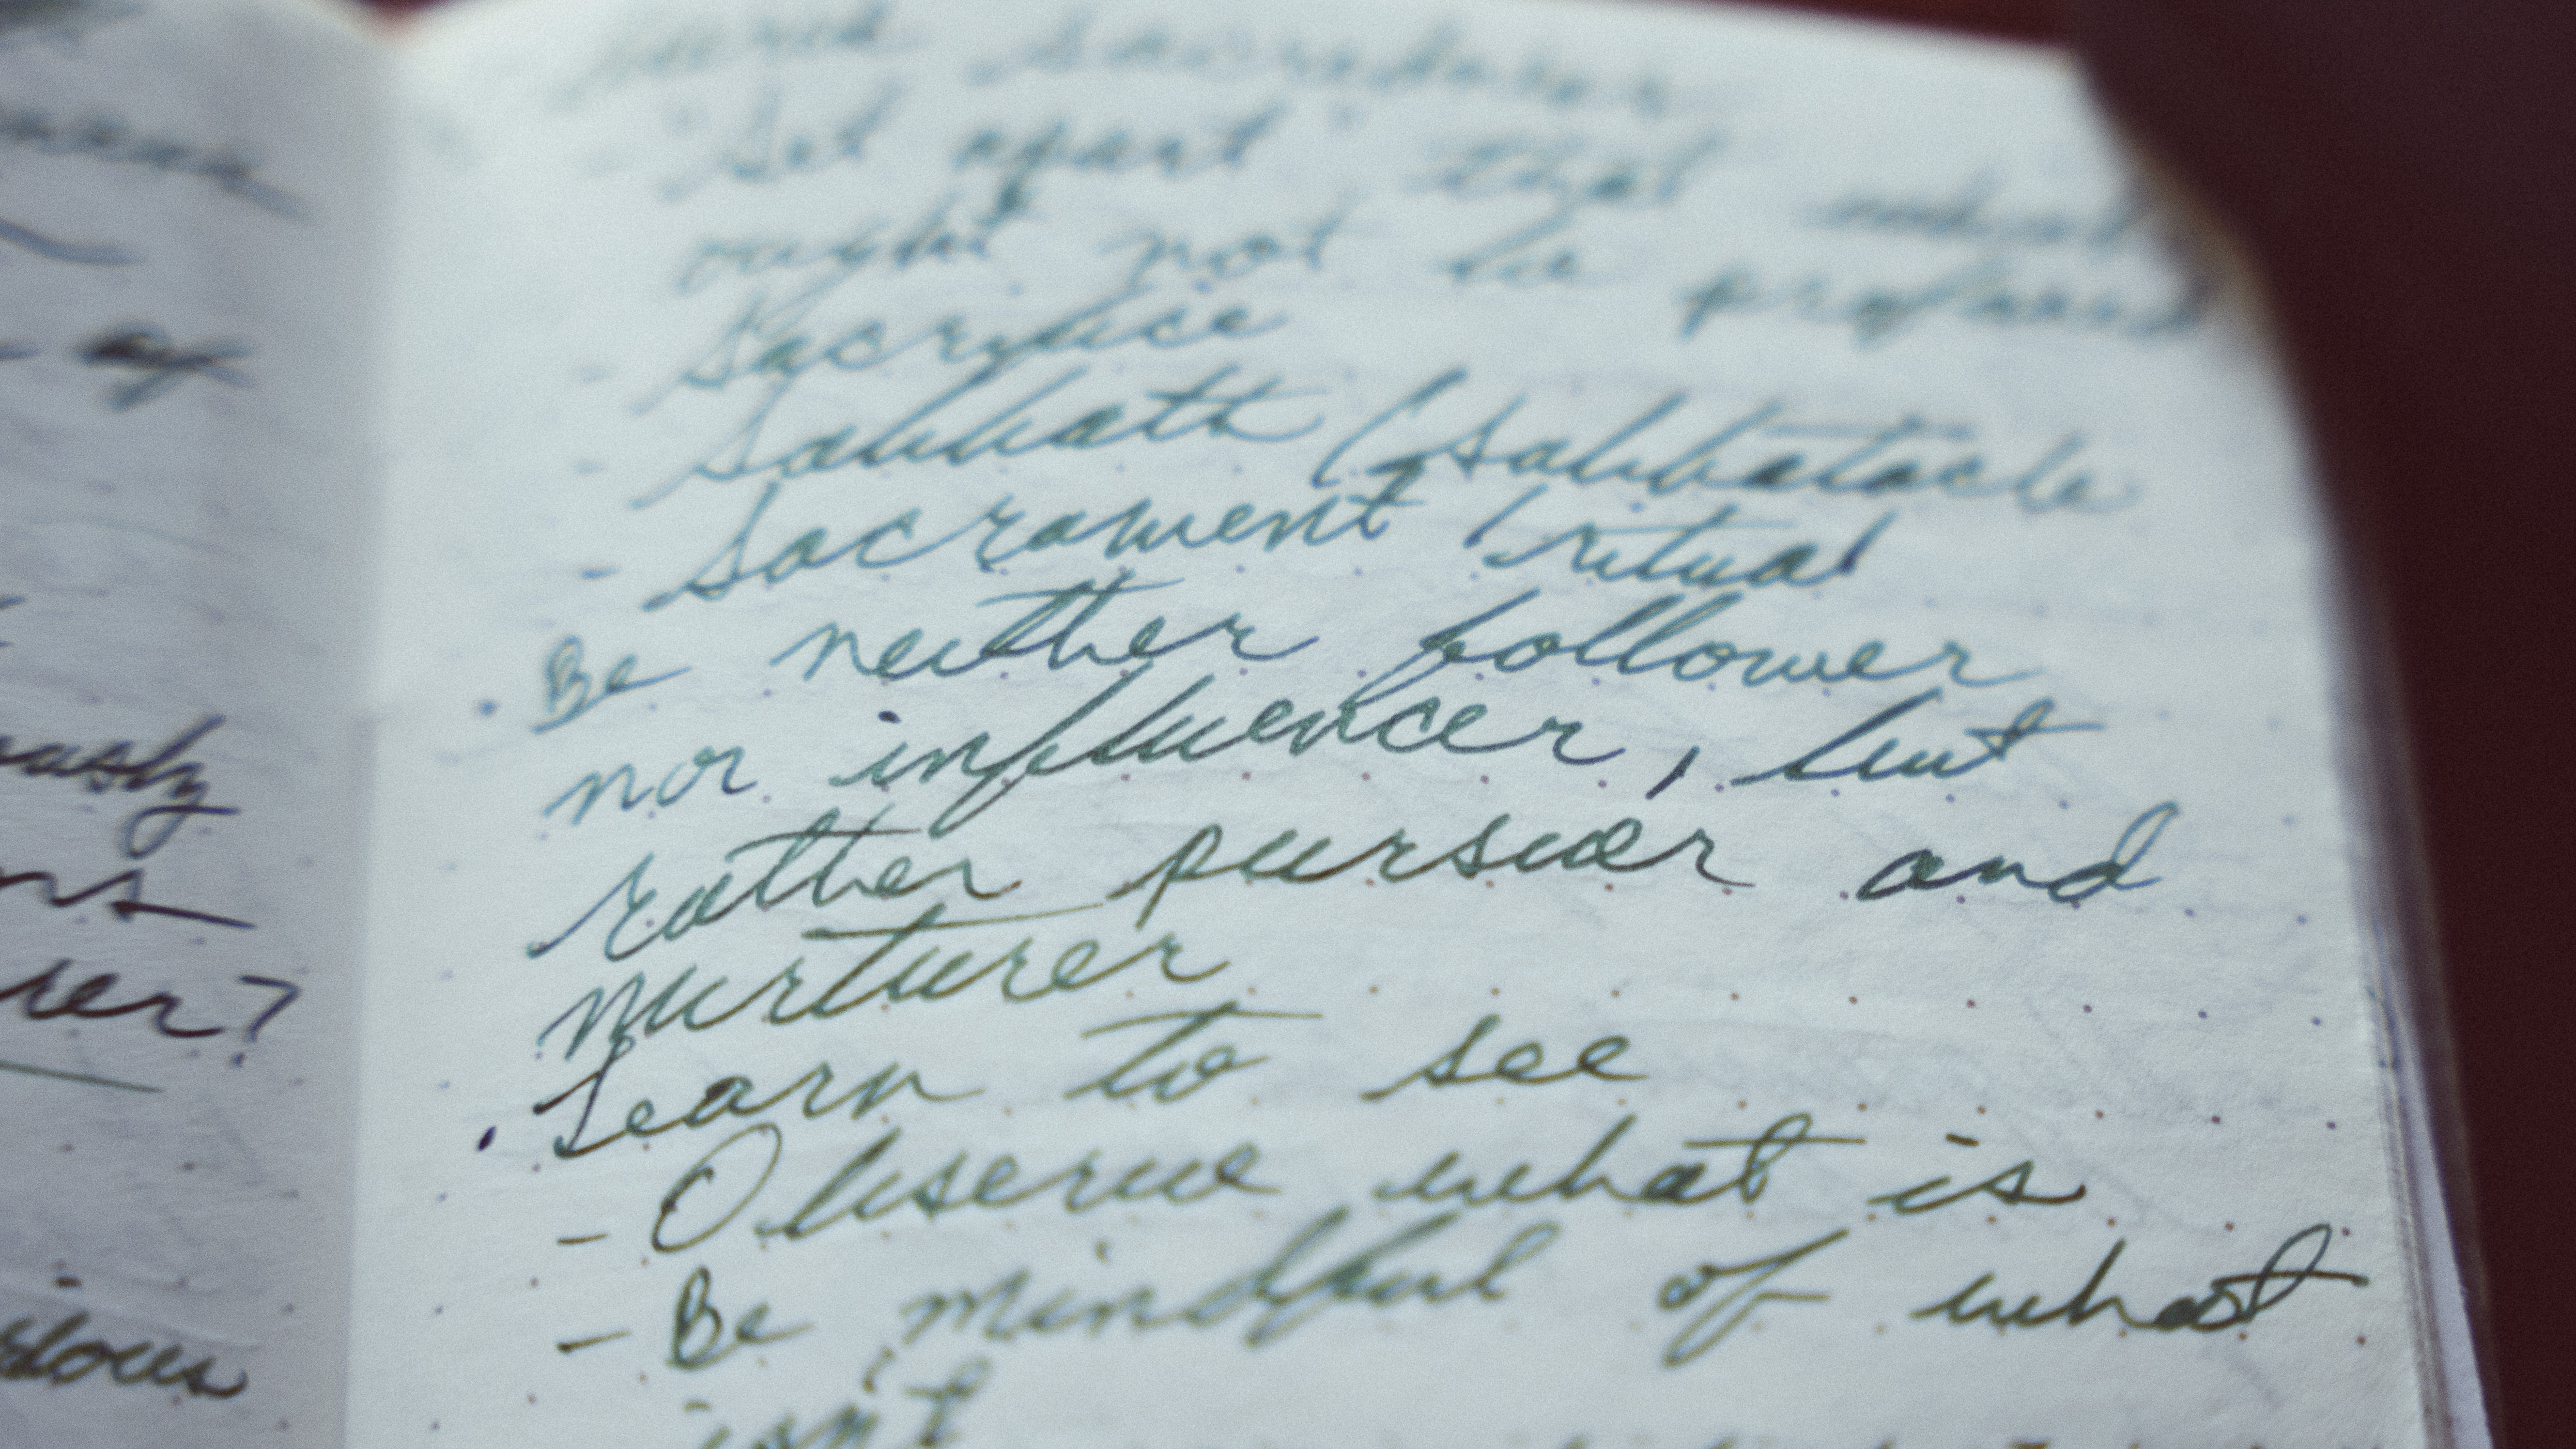 ously
rer?
"Set apart" that which
ought not be profaned
- Sacrifice
- Sabbath (sabbatacle
- Sacrament / ritual
• Be neither follower
nor influencer, but
rather pursuer and
nurturer
• Learn to see
- Observe what is
- Be mindful of what
isn't